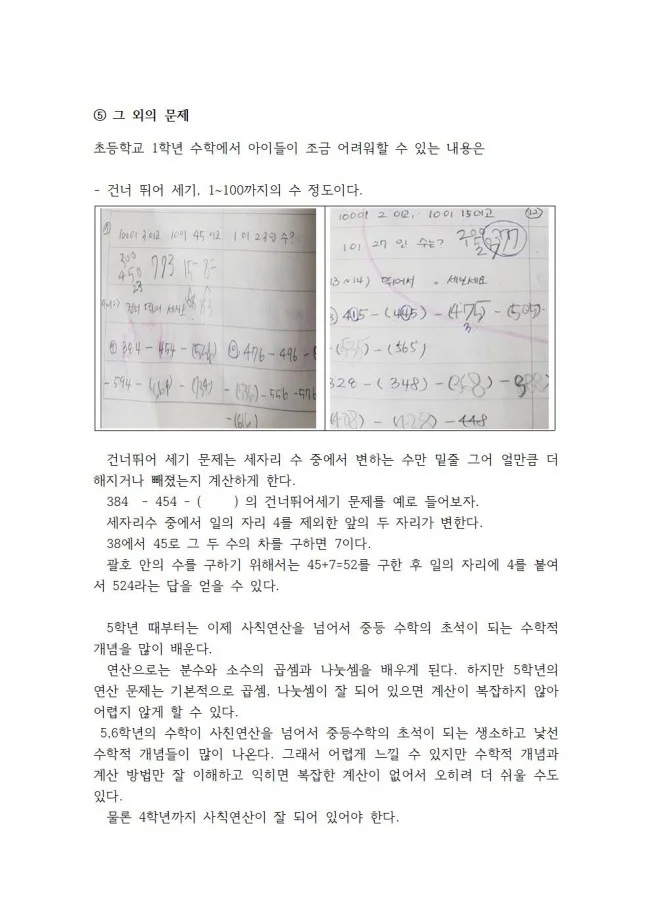 ⑤ 그 외의 문제
초등학교 1학년 수학에서 아이들이 조금 어려워할 수 있는 내용은
- 건너 뛰어 세기, 1~100까지의 수 정도이다.
100이 3이고 10이 45이고 1이 23인 수?
300
450 773
23
건너 뛰어 세기
384 - 454 - ( 476 - 496 -
- 594 - - - 556 - 576
100이 2 이고, 10이 15이고
1이 27 인 수는? 377
뛰어서 세보세요
415 - (445) - (475) - (505)-
-(535) - (565)
328 - (348) - (368) - 388
- 448
건너뛰어 세기 문제는 세자리 수 중에서 변하는 수만 밑줄 그어 얼만큼 더
해지거나 빼졌는지 계산하게 한다.
384 - 454 - ( ) 의 건너뛰어세기 문제를 예로 들어보자.
세자리수 중에서 일의 자리 4를 제외한 앞의 두 자리가 변한다.
38에서 45로 그 두 수의 차를 구하면 7이다.
괄호 안의 수를 구하기 위해서는 45+7=52를 구한 후 일의 자리에 4를 붙여
서 524라는 답을 얻을 수 있다.
5학년 때부터는 이제 사칙연산을 넘어서 중등 수학의 초석이 되는 수학적
개념을 많이 배운다.
연산으로는 분수와 소수의 곱셈과 나눗셈을 배우게 된다. 하지만 5학년의
연산 문제는 기본적으로 곱셈, 나눗셈이 잘 되어 있으면 계산이 복잡하지 않아
어렵지 않게 할 수 있다.
5,6학년의 수학이 사친연산을 넘어서 중등수학의 초석이 되는 생소하고 낯선
수학적 개념들이 많이 나온다. 그래서 어렵게 느낄 수 있지만 수학적 개념과
계산 방법만 잘 이해하고 익히면 복잡한 계산이 없어서 오히려 더 쉬울 수도
있다.
물론 4학년까지 사칙연산이 잘 되어 있어야 한다.